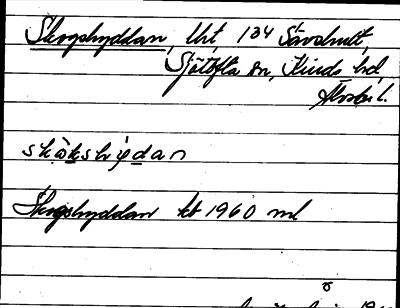 Skogshyddan, lht, 134 Sävshult,
Sjötofta sn, Kinds hd,
Älvsb. l.
skɷ̀kshỳdan
Skogshyddan kt 1960 ml